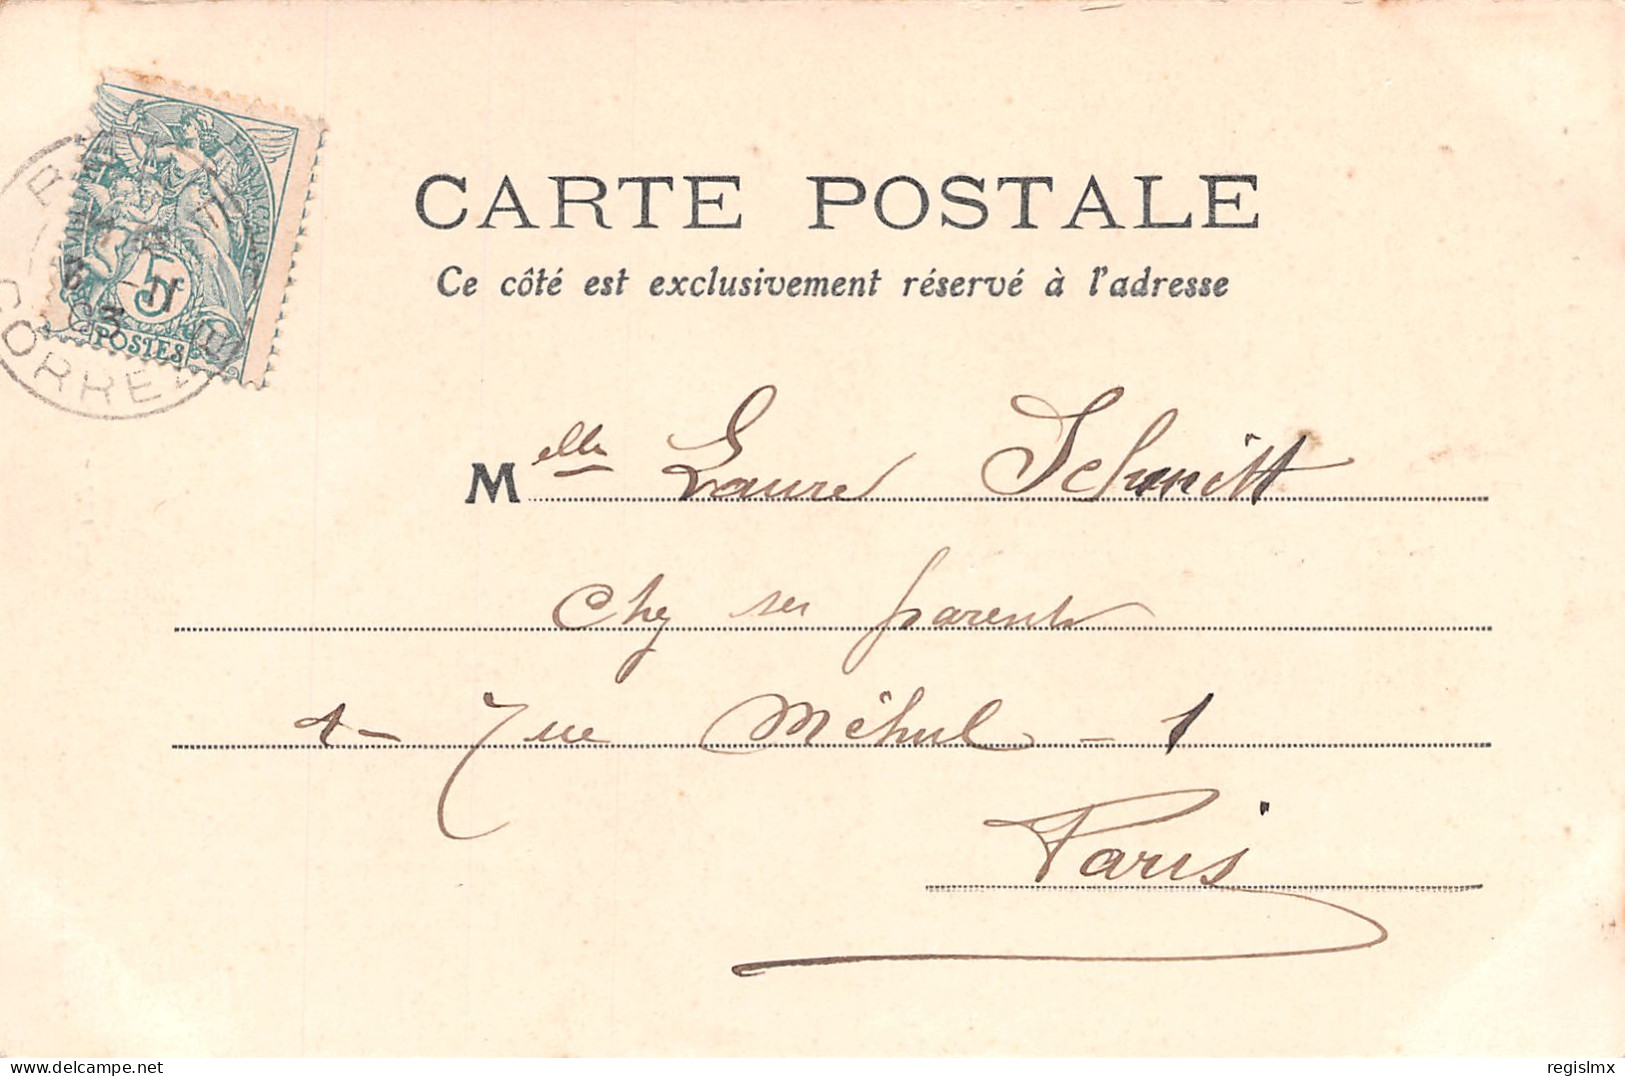 RÉPUBLIQUE FRANÇAISE
5c
POSTES
CORRÈZE
CARTE POSTALE
Ce côté est exclusivement réservé à l'adresse
Melle Laure Schmitt
Chez ses parents
1 - rue Méhul - 1
Paris
regislmx